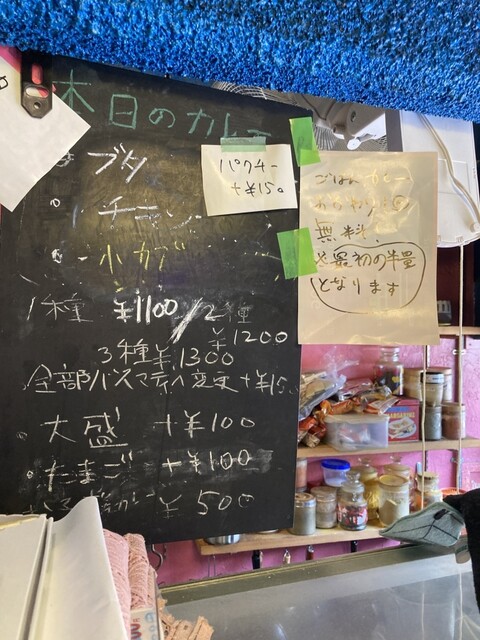 本日のカレー
ブタ
チキン
1種 ¥1100/2種
¥1200
3種¥1300
全部バスマティへ変更+¥15
大盛 +¥100
たまご +¥100
¥500
パクチー
+¥150
ごはん カレー
おかわり
無料
※最初の半量
となります